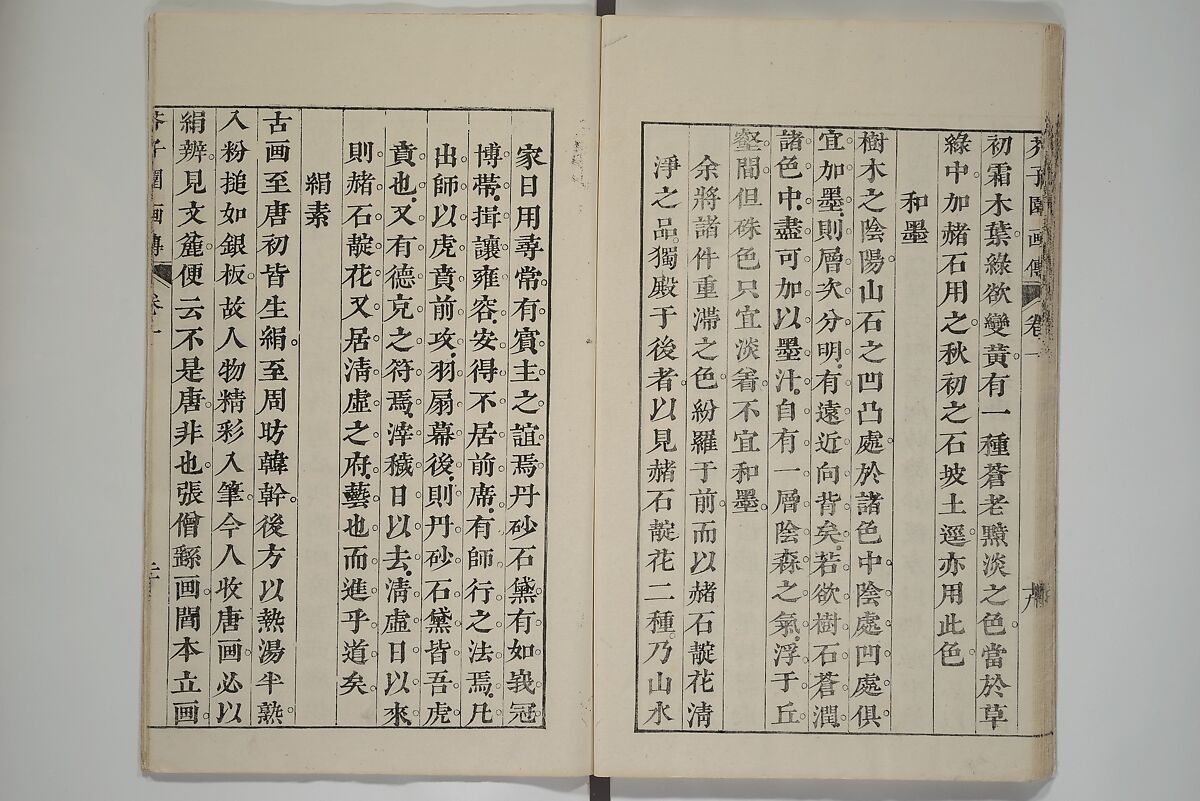 芥子園画傳 卷一
初霜木葉綠欲變黃。有一種蒼老黯淡之色。當於草
綠中加赭石用之。秋初之石坡土逕。亦用此色
和墨
樹木之陰陽。山石之凹凸處。於諸色中陰處凹處。俱
宜加墨。則層次分明。有遠近向背矣。若欲樹石蒼潤。
諸色中。盡可加以墨汁。自有一層陰森之氣。浮于丘
壑間。但硃色只宜淡着。不宜和墨。
余將諸件重滯之色。紛羅于前。而以赭石靛花清
淨之品。獨殿于後者。以見赭石靛花二種。乃山水
家日用尋常。有賓主之誼焉。丹砂石黛。有如峩冠
博帶。揖讓雍容。安得不居前席。有師行之法焉。凡
出師以虎賁前攻。羽扇幕後。則丹砂石黛。皆吾虎
賁也。又有德克之符焉。滓穢日以去。清虛日以來。
則赭石靛花。又居清虛之府。藝也而進乎道矣。
絹素
古画至唐初皆生絹。至周昉韓幹。後方以熱湯半熟。
入粉搥如銀板。故人物精彩入筆。今人收唐画。必以
絹辨。見文麄便云不是唐。非也。張僧繇画。閻本立画。
芥子園画傳 卷一